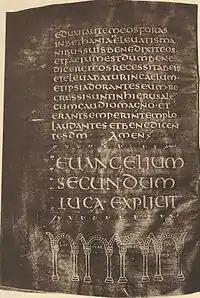 EDUXITAUTEMEOSFORAS
INBETHANIAETELEUATISMA
NIBUSSUISBENEDIXITEOS
ETFACTUMESTDUMBENE
DICERETEOSRECESSITABEIS
ETELEUABATURINCAELUM
ETIPSIADORANTESEUMRE
CUMGAUDIOMAGNO·ET
ERANTSEMPERINTEMPLO
LAUDANTESETBENEDICEN
TESDM AMEN
EUANGELIUM
SECUNDUM
LUCA EXPLICIT